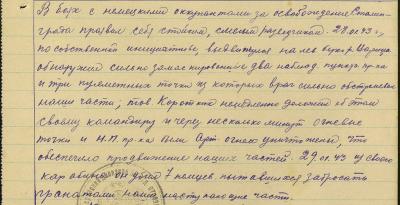 В боях с немецкими оккупантами за освобождение Сталин-
града проявил себя стойким, смелым разведчиком 28.01.43 г.
по собственной инициативе выдвинулся на лев. берег р. Царица
обнаружил сильно замаскированные два наблюд. пункта пр-ка
и три пулеметных точки из которых враг сильно обстреливал
наши части, тов. Коротких немедленно доложил об этом
своему командиру и через несколько минут огневые
точки и Н.П. пр-ка были арт. огнем уничтожены, что
обеспечило продвижение наших частей 29.01.43 из своего
карабина он убил 7 немцев пытавшихся забросать
гранатами наши наступающие части.